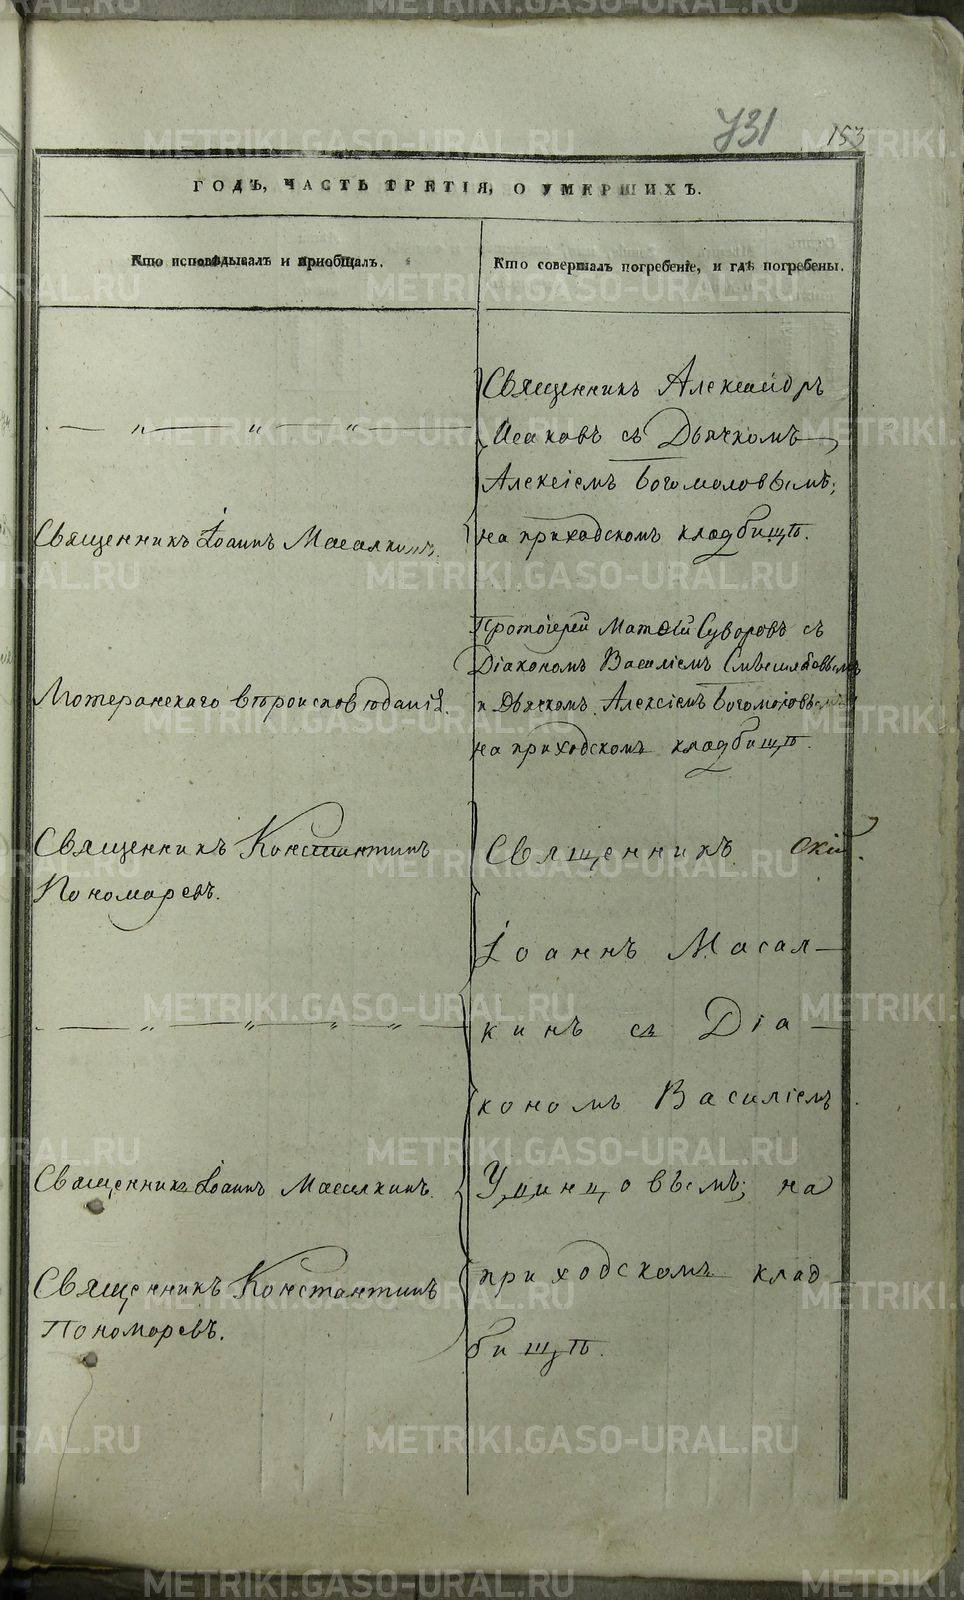 731 153
ГОДЪ, ЧАСТЬ ТРЕТІЯ, О УМЕРШИХЪ.
Кто исповѣдывалъ и пріобщалъ.
Кто совершалъ погребеніе, и гдѣ погребены.
Священникъ Александръ
Исаковъ съ Дьячкомъ
Алексіемъ Богомоловымъ;
на приходскомъ кладбищѣ.
Священникъ Іоаннъ Масалкинъ.
Протоіерей Матѳій Суворовъ съ
Діакономъ Василіемъ
и Дьячкомъ Алексіемъ Богомоловымъ
на приходскомъ кладбищѣ.
Лютеранскаго вѣроисповѣданія.
Священникъ Константинъ
Пономаревъ.
Священникъ
Іоаннъ Масал-
кинъ съ Діа-
кономъ Василіемъ
Удинцовымъ; на
приходскомъ клад-
бищѣ.
Священникъ Іоаннъ Масалкинъ.
Священникъ Константинъ
Пономаревъ.
METRIKI.GASO-URAL.RU